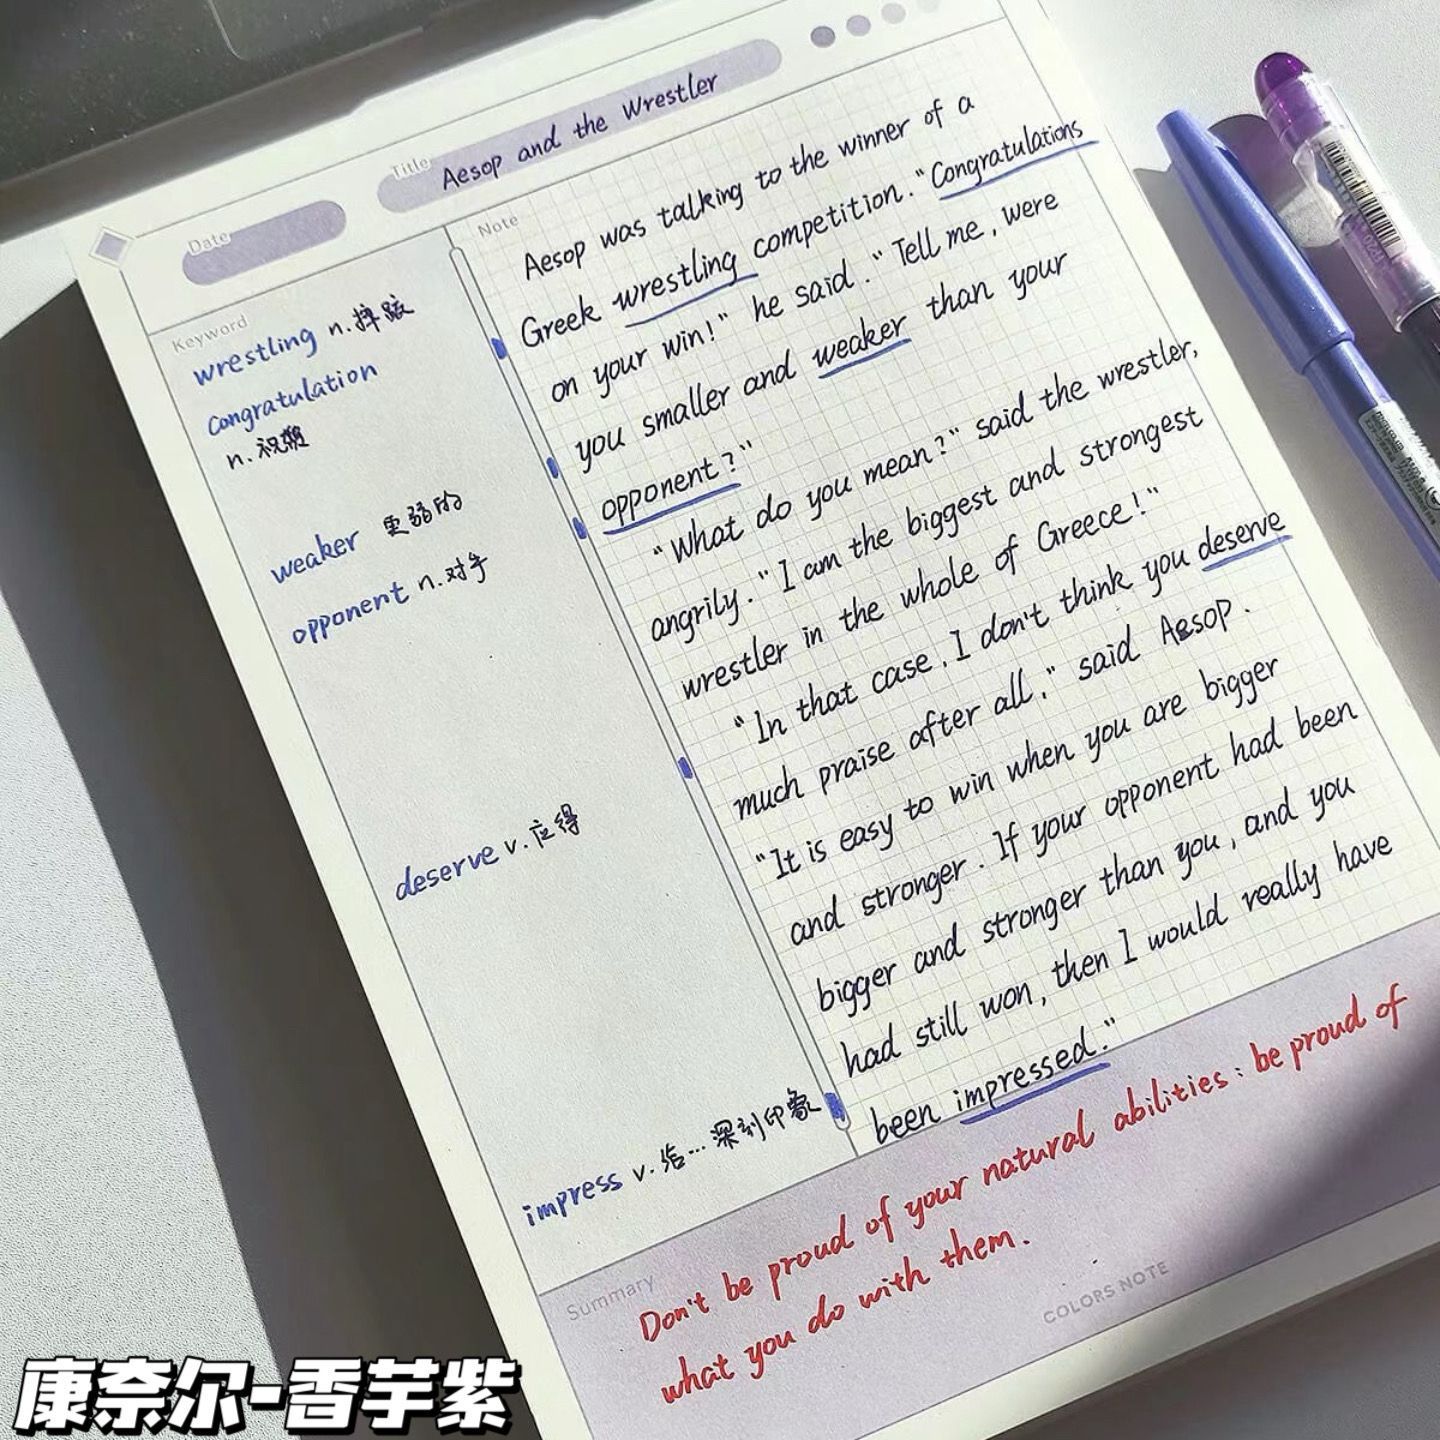 Title
Aesop and the Wrestler
Date
Keyword
wrestling n.摔跤
congratulation
n.祝贺
weaker 更弱的
opponent n.对手
deserve v.应得
impress v.给…深刻印象
Note
Aesop was talking to the winner of a
Greek wrestling competition."Congratulations
on your win!" he said."Tell me, were
you smaller and weaker than your
opponent?"
"What do you mean?" said the wrestler,
angrily."I am the biggest and strongest
wrestler in the whole of Greece!"
"In that case, I don't think you deserve
much praise after all," said Aesop.
"It is easy to win when you are bigger
and stronger. If your opponent had been
bigger and stronger than you, and you
had still won, then I would really have
been impressed."
Summary
Don't be proud of your natural abilities: be proud of
what you do with them.
COLORS NOTE
康奈尔-香芋紫